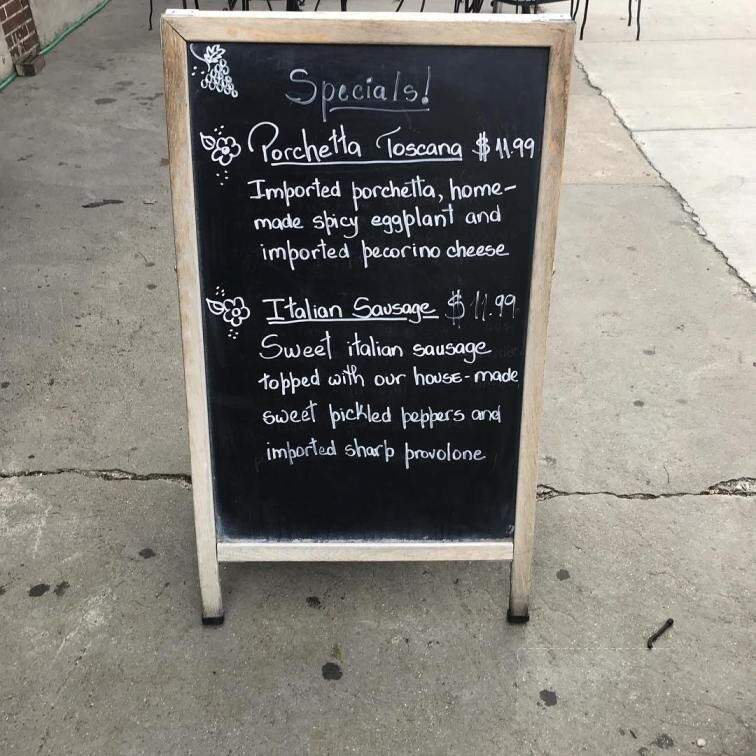 Specials!
Porchetta Toscana $11.99
Imported porchetta, home-
made spicy eggplant and
imported pecorino cheese
Italian Sausage $11.99
Sweet italian sausage
topped with our house-made
sweet pickled peppers and
imported sharp provolone